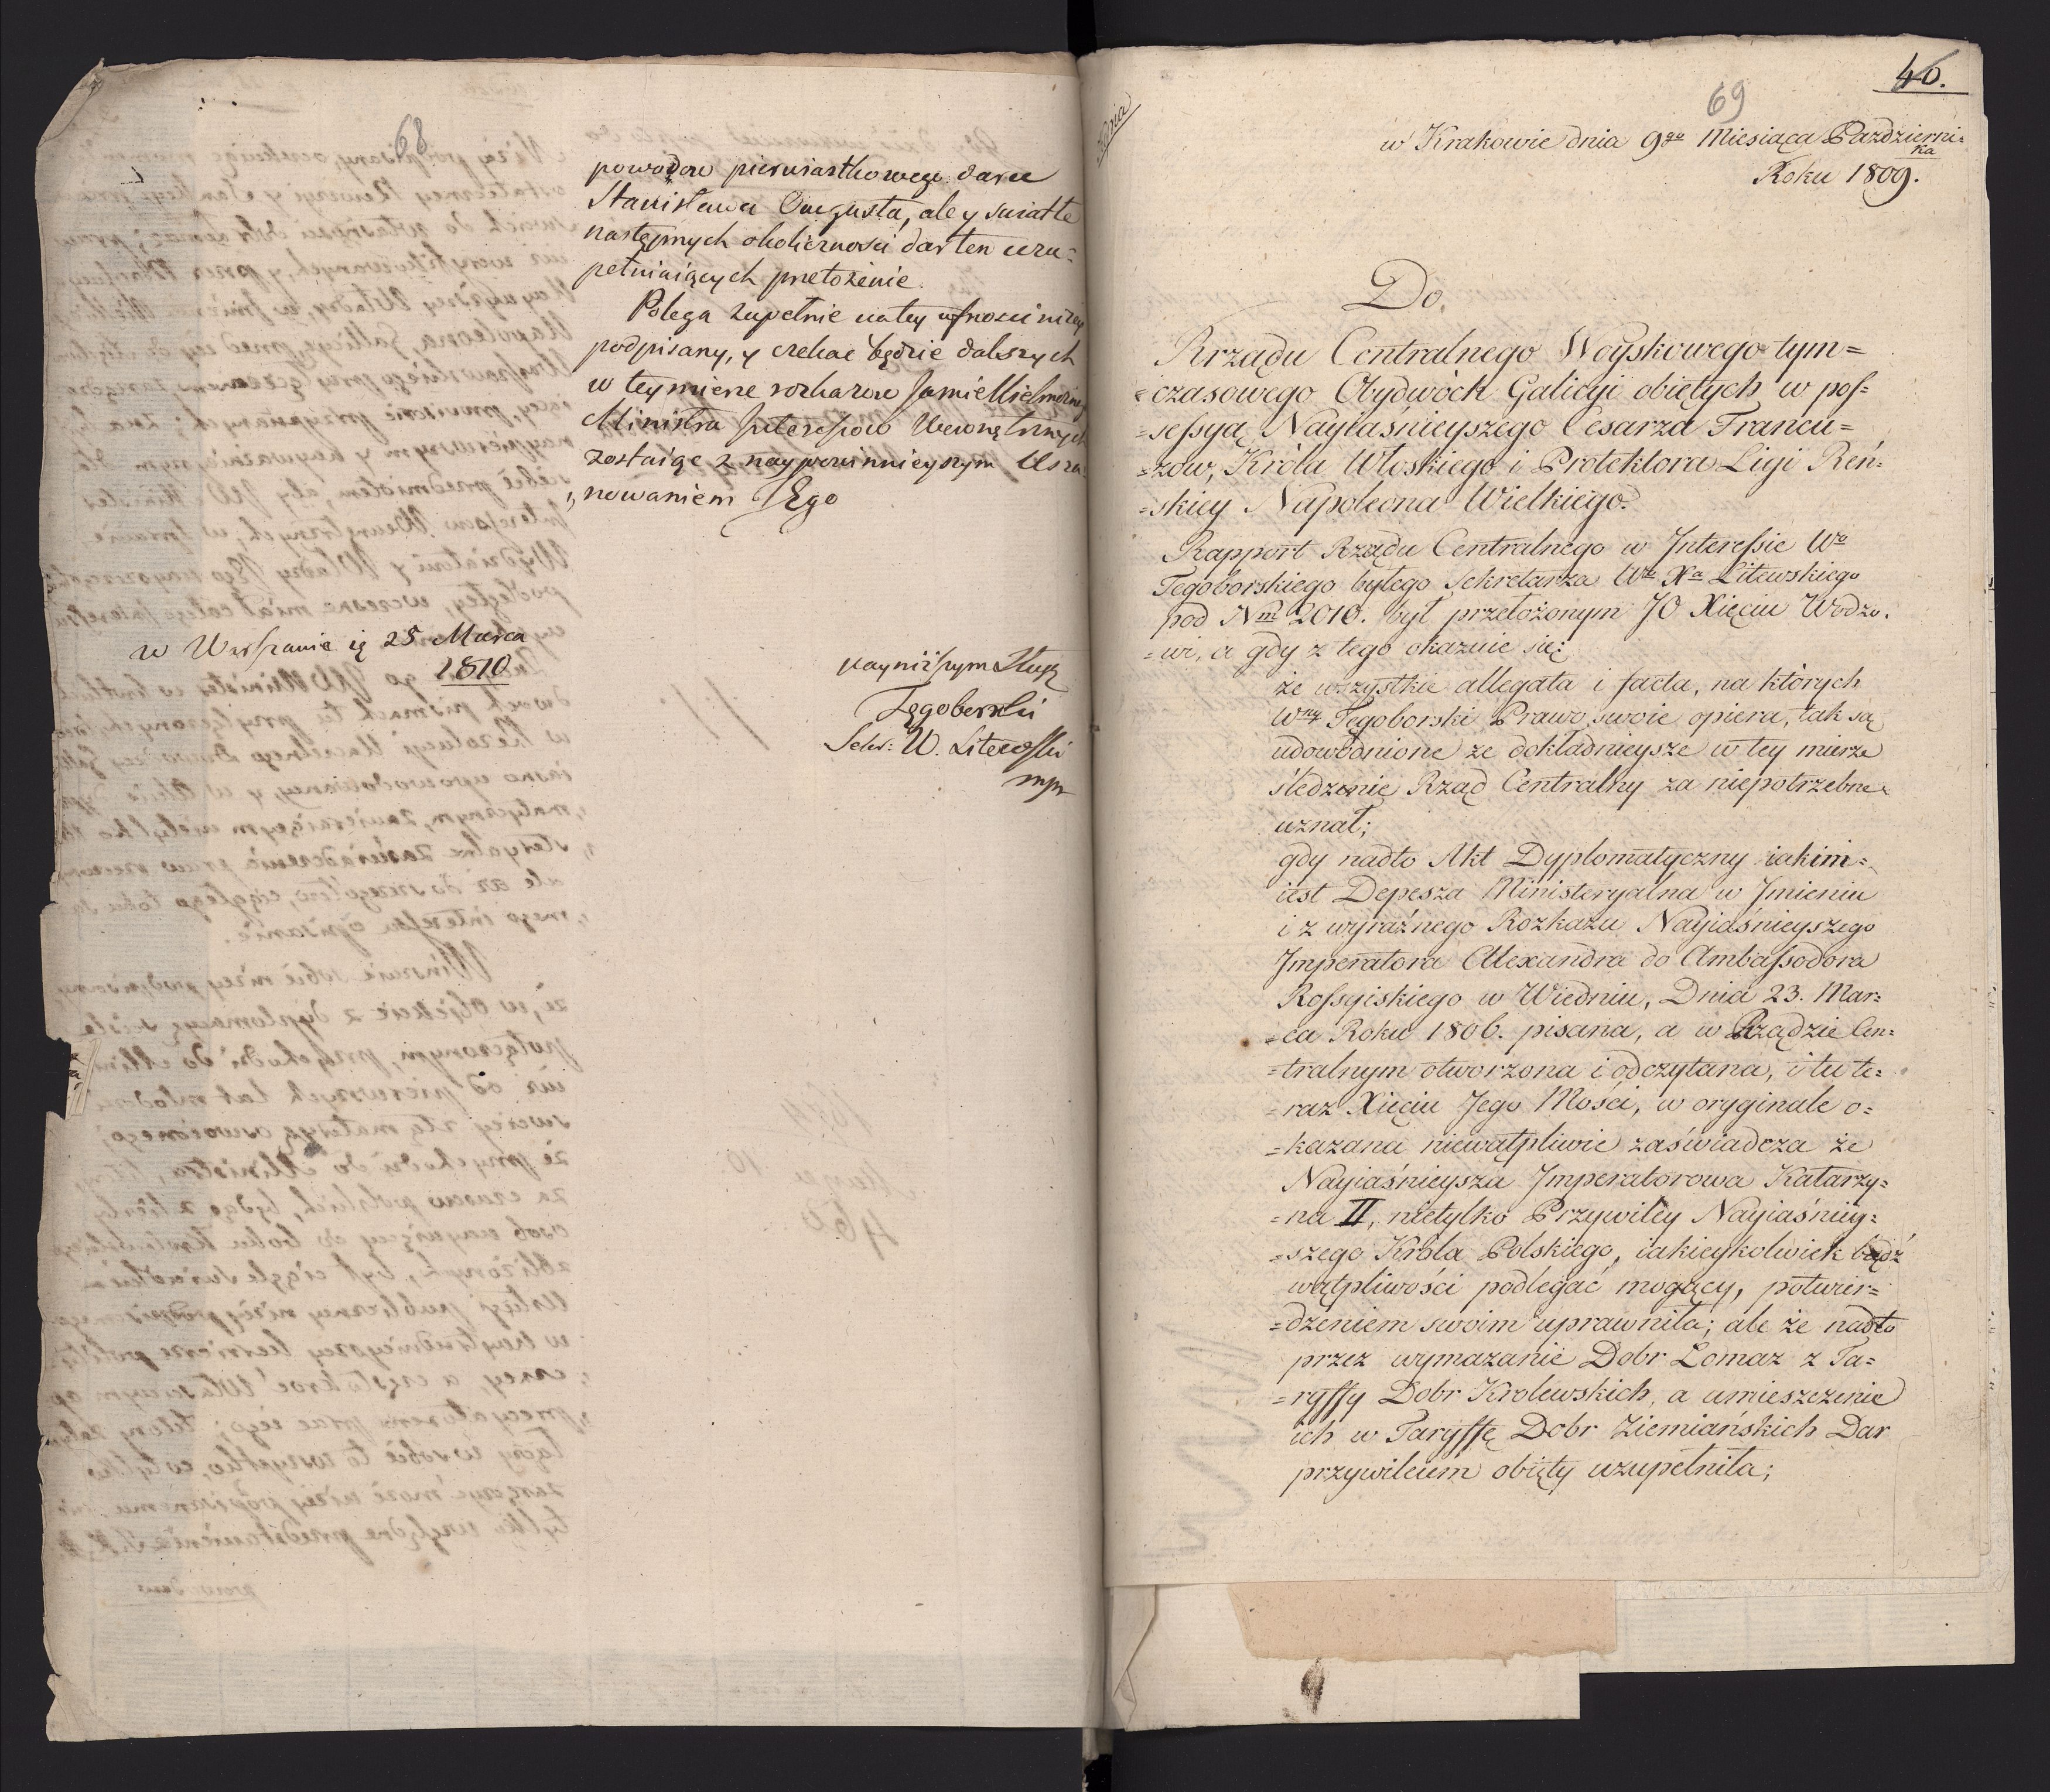 68
powodow pierwiastkowego daru
Stanisława Augusta, ale y swiatłe
następnych okoliczności dar ten uzu=
pełniaiących przełożenie.
Polega zupełnie na tey ufności niżey
podpisany, y czekać będzie dalszych
w tey mierze rozkazow
Ministra Interessow Wewnętrznych
zostaiąc z naypowinnieyszym Usza=
nowaniem Jego
w Warszawie 25 Marca
1810
nayniższym Sługą
Tęgoborski
Sekr: W. Litewski
mpr
40.
69
Kopia
w Krakowie dnia 9go Miesiąca Pazdzierni=
ka
Roku 1809.
Do,
Rrządu Centralnego Woyskowego tym=
=czasowego Obydwóch Galicyi obiętych w pos=
=sessyą Nayiaśnieyszego Cesarza Francu=
=zow, Króla Włoskiego i Protektora Ligi Reń=
=skiey Napoleona Wielkiego.
Rapport Rządu Centralnego w Interessie Wo
Tęgoborskiego byłego Sekretarza Wo Xa Litewskiego
pod Nm 2010. był przełożonym JO Xięciu Wodzo.
=wi, a gdy z tego okazuie się:
że wszystkie allegata i facta, na których
Wny Tęgoborski Prawo swoie opiera, tak są
udowodnione że dokładnieysze w tey mierze
śledzenie Rząd Centralny za niepotrzebne
uznał;
gdy nadto Akt Dyplomatyczny iakim=
iest Depesza Ministeryalna w Jmieniu
i z wyraźnego Rozkazu Nayiaśnieyszego
Jmperatora Alexandra do Ambassodora
Rossyiskiego w Wiedniu, Dnia 23. Mar=
=ca Roku 1806. pisana, a w Rządzie Cen=
=tralnym otworzona i odczytana, i tu te=
=raz Xięciu Jego Mości, w oryginale o=
=kazana niewątpliwie zaświadcza że
Nayiaśnieysza Jmperatorowa Katarzy=
=na II, nietylko Przywiley Nayiaśniey=
=szego Króla Polskiego, iakieykolwiek bądź
wątpliwości podlegać mogący, potwier=
=dzeniem swoim uprawniła; ale że nadto
przez wymazanie Dobr Lomaz z Ta=
=ryffy Dobr Krolewskich, a umieszczenie
ich w Taryffę Dobr Ziemiańskich Dar
przywileiem obięty uzupełniła;